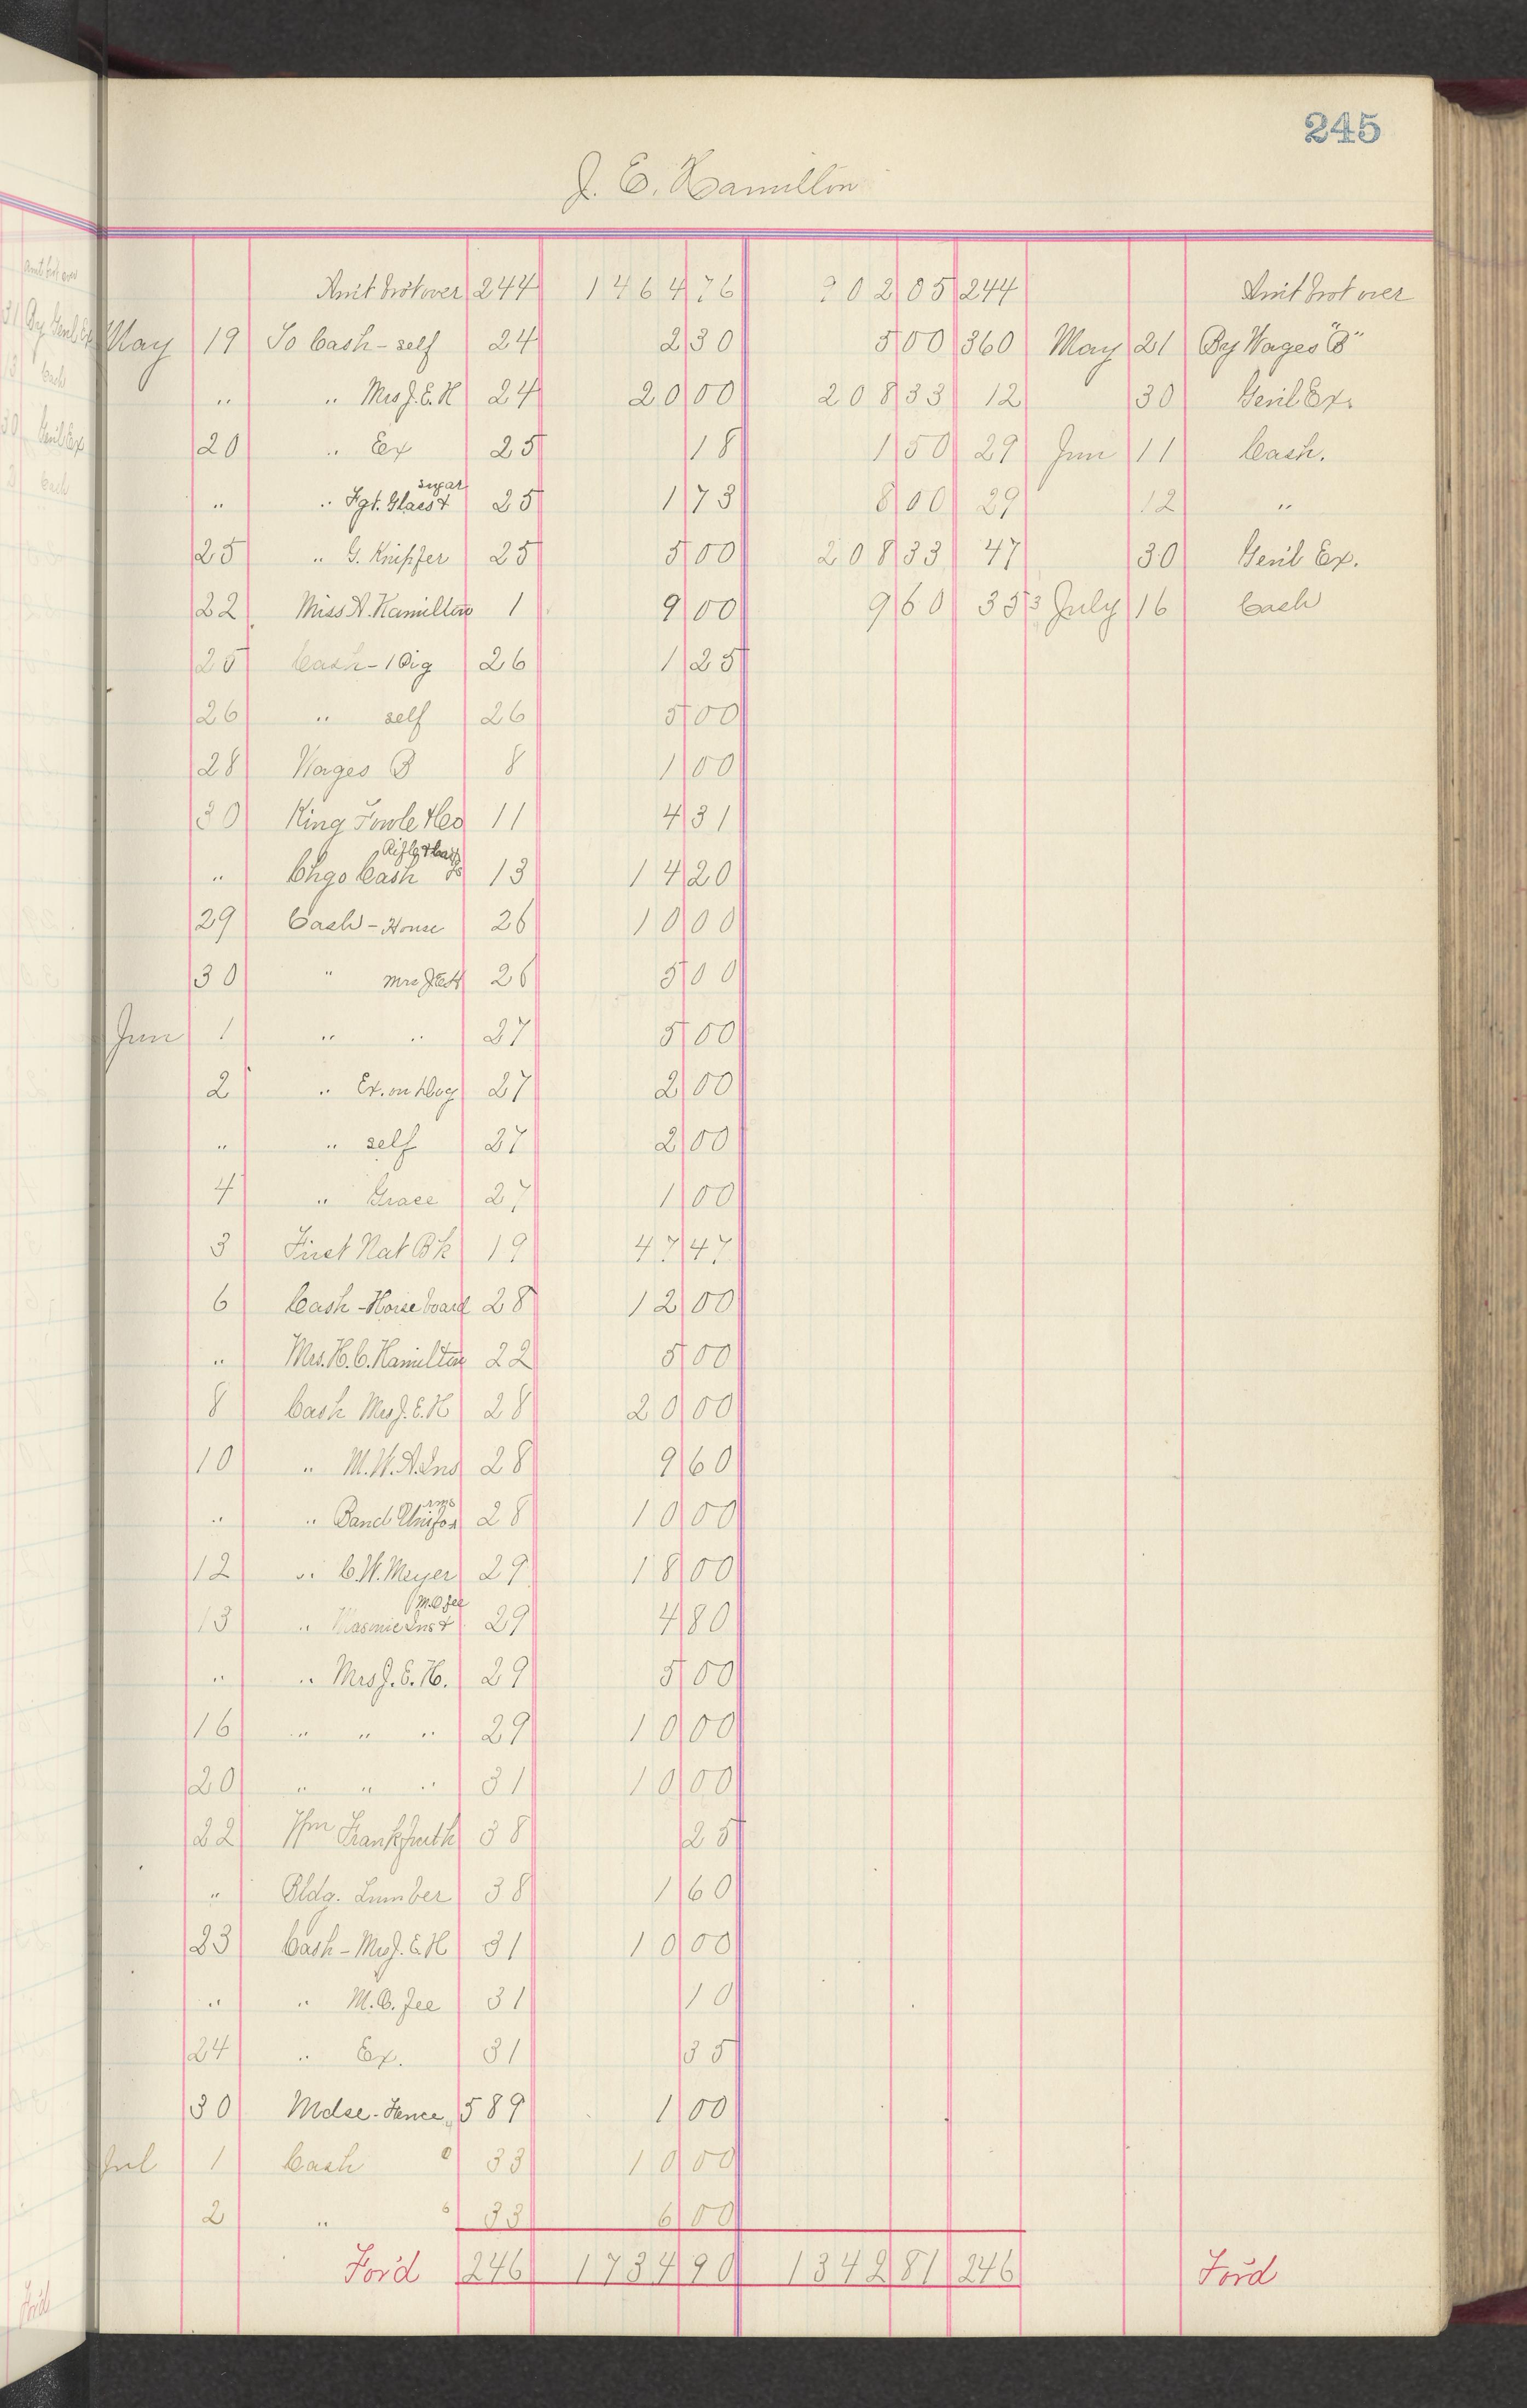 245
J. E. Hamilton
Amt brot over 244 1464 76 902 05 244 Amt brot over
May 19 To Cash - self 24 2 30 5 00 360 May 21 By Wages "B"
" " Mrs J. E. H 24 20 00 208 33 12 30 Genl Ex.
20 " Ex 25 18 1 50 29 Jun 11 Cash.
" " Fgt. Glass & sugar 25 1 73 8 00 29 12 "
25 " G. Knipfer 25 5 00 208 33 47 30 Genl Ex.
22 Miss A. Hamilton 1 9 00 9 60 353 July 16 Cash
25 Cash - 1 Pig 26 1 25
26 " self 26 5 00
28 Wages B 8 1 00
30 King Fowle & Co 11 4 31
" Chgo Cash 13 14 20
29 Cash - House 26 10 00
30 " Mrs JEH 26 5 00
Jun 1 " " 27 5 00
2 " Ex. on Dog 27 2 00
" " self 27 2 00
4 " Grace 27 1 00
3 First Nat Bk 19 47 47
6 Cash - Horse board 28 12 00
" Mrs. H. C. Hamilton 22 5 00
8 Cash Mrs J. E. H 28 20 00
10 " M. W. A. Ins 28 9 60
" " Band Uniforms 28 10 00
12 " C. W. Meyer 29 18 00
13 " Masonic Ins & M.O fee 29 4 80
" " Mrs J. E. H. 29 5 00
16 " " " 29 10 00
20 " " " 31 10 00
22 Wm Frankfurth 38 25
" Bldg. Lumber 38 1 60
23 Cash - Mrs J. E. H 31 10 00
" " M. O. Fee 31 10
24 " Ex. 31 35
30 Mdse - Fence 589 1 00
Jul 1 Cash 33 10 00
2 " 33 6 00
For'd 246 1734 90 1342 81 246 For'd